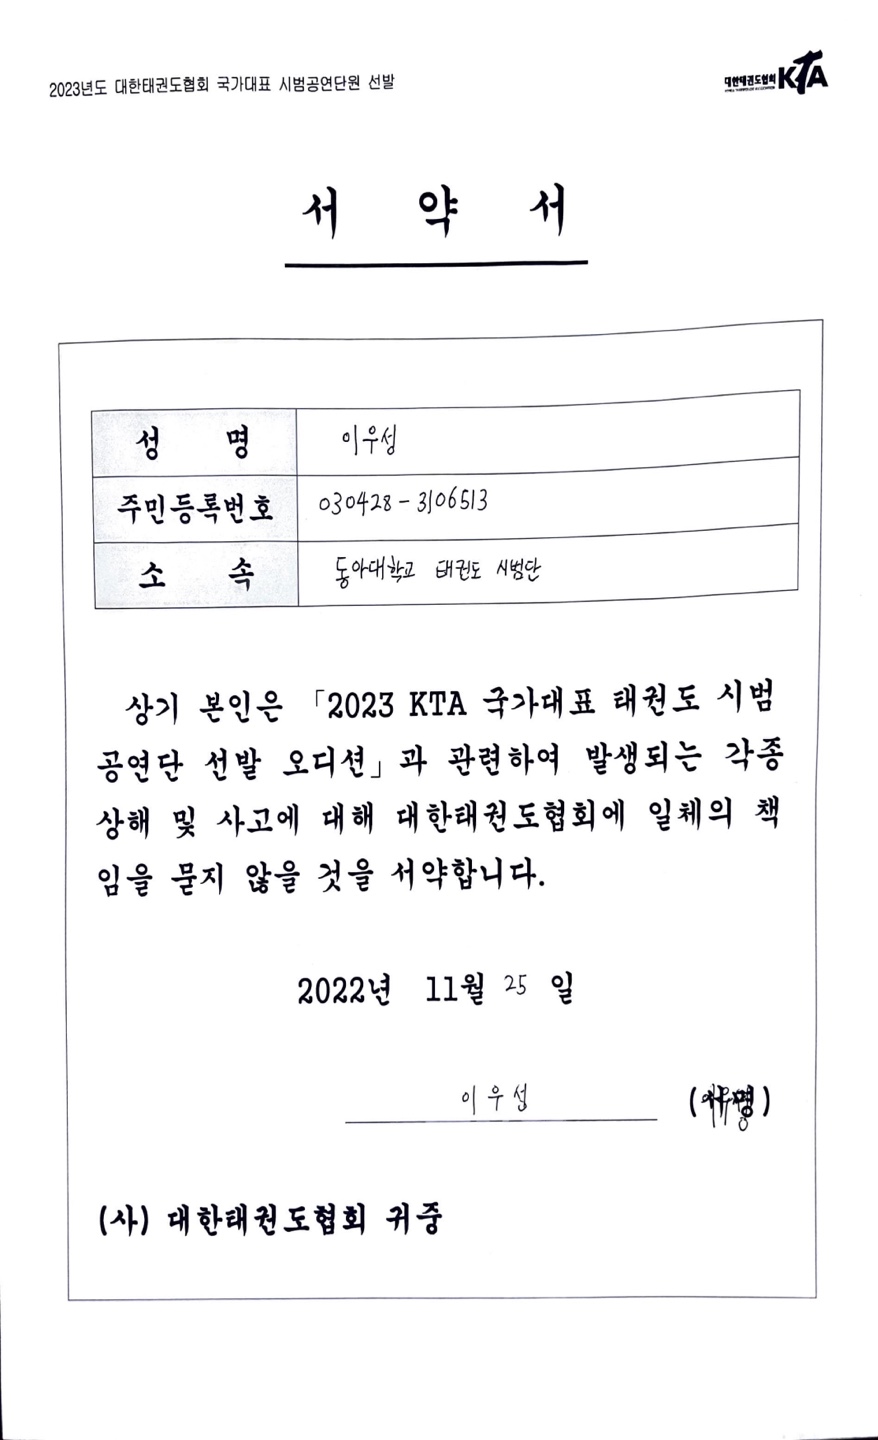 2023년도 대한태권도협회 국가대표 시범공연단원 선발
대한태권도협회 KTA
서 약 서
성 명 이우성
주민등록번호 030428-3106513
소 속 동아대학교 태권도 시범단
상기 본인은 「2023 KTA 국가대표 태권도 시범
공연단 선발 오디션」과 관련하여 발생되는 각종
상해 및 사고에 대해 대한태권도협회에 일체의 책
임을 묻지 않을 것을 서약합니다.
2022년 11월 25 일
이우성 (서명)
(사) 대한태권도협회 귀중